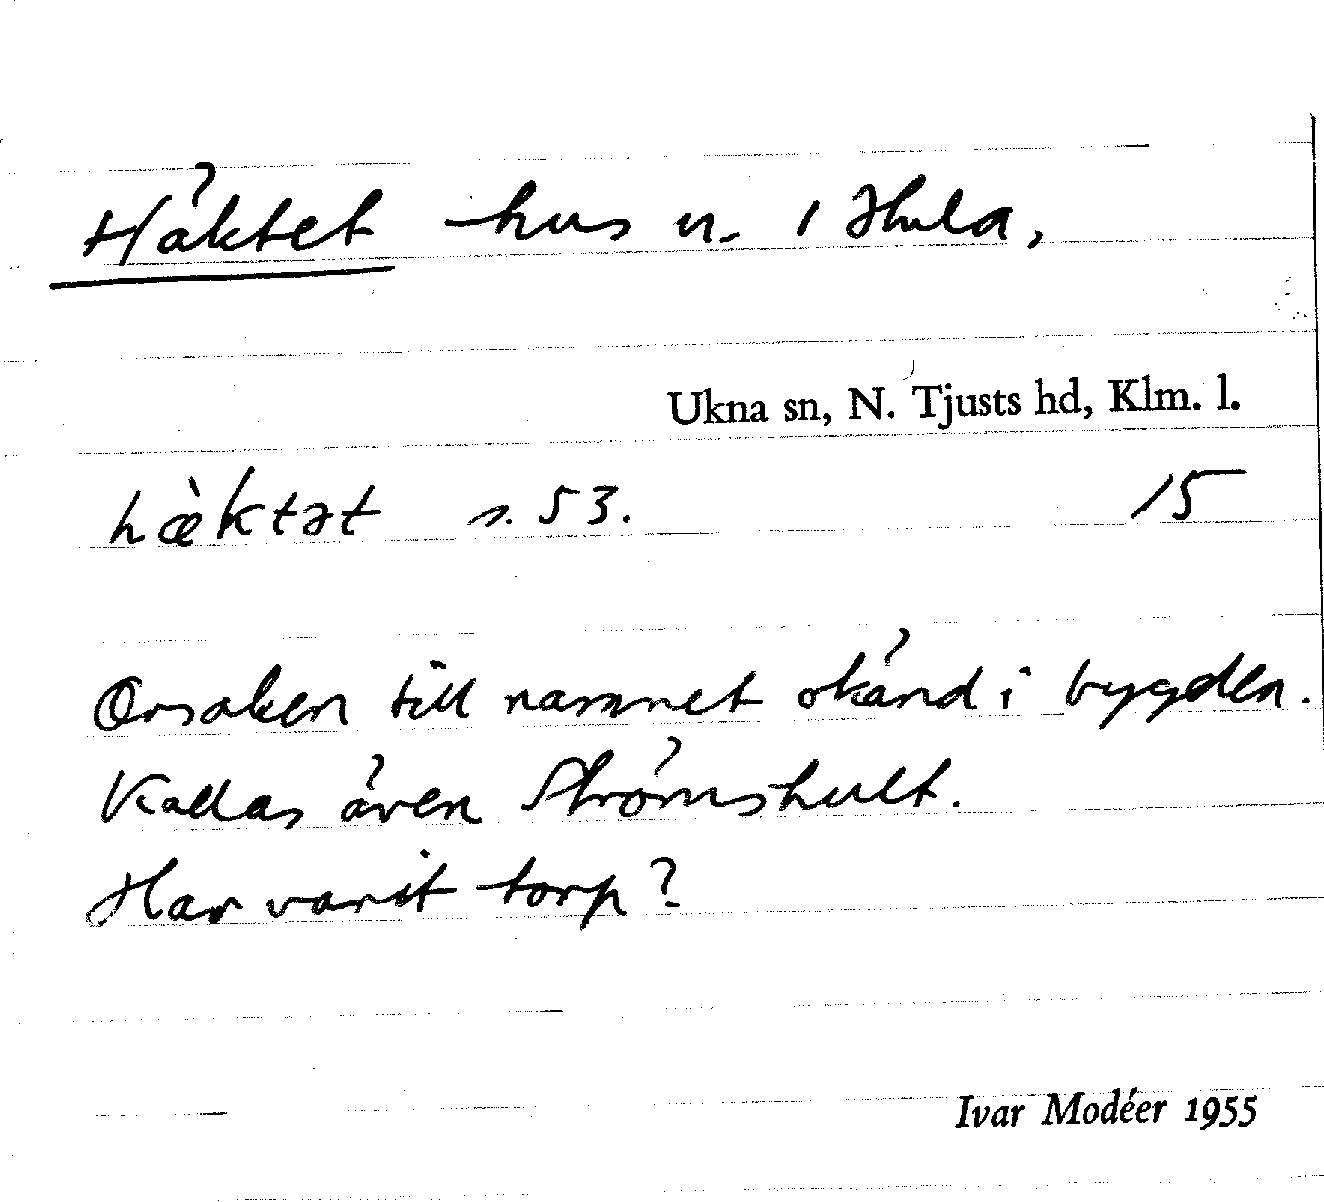 Häktet hus u. / Hula,
Ukna sn, N. Tjusts hd, Klm. l.
hæ̀ktət s. 53. 15
Orsaken till namnet okänd i bygden.
Kallas även Strömshult.
Har varit torp?
Ivar Modéer 1955